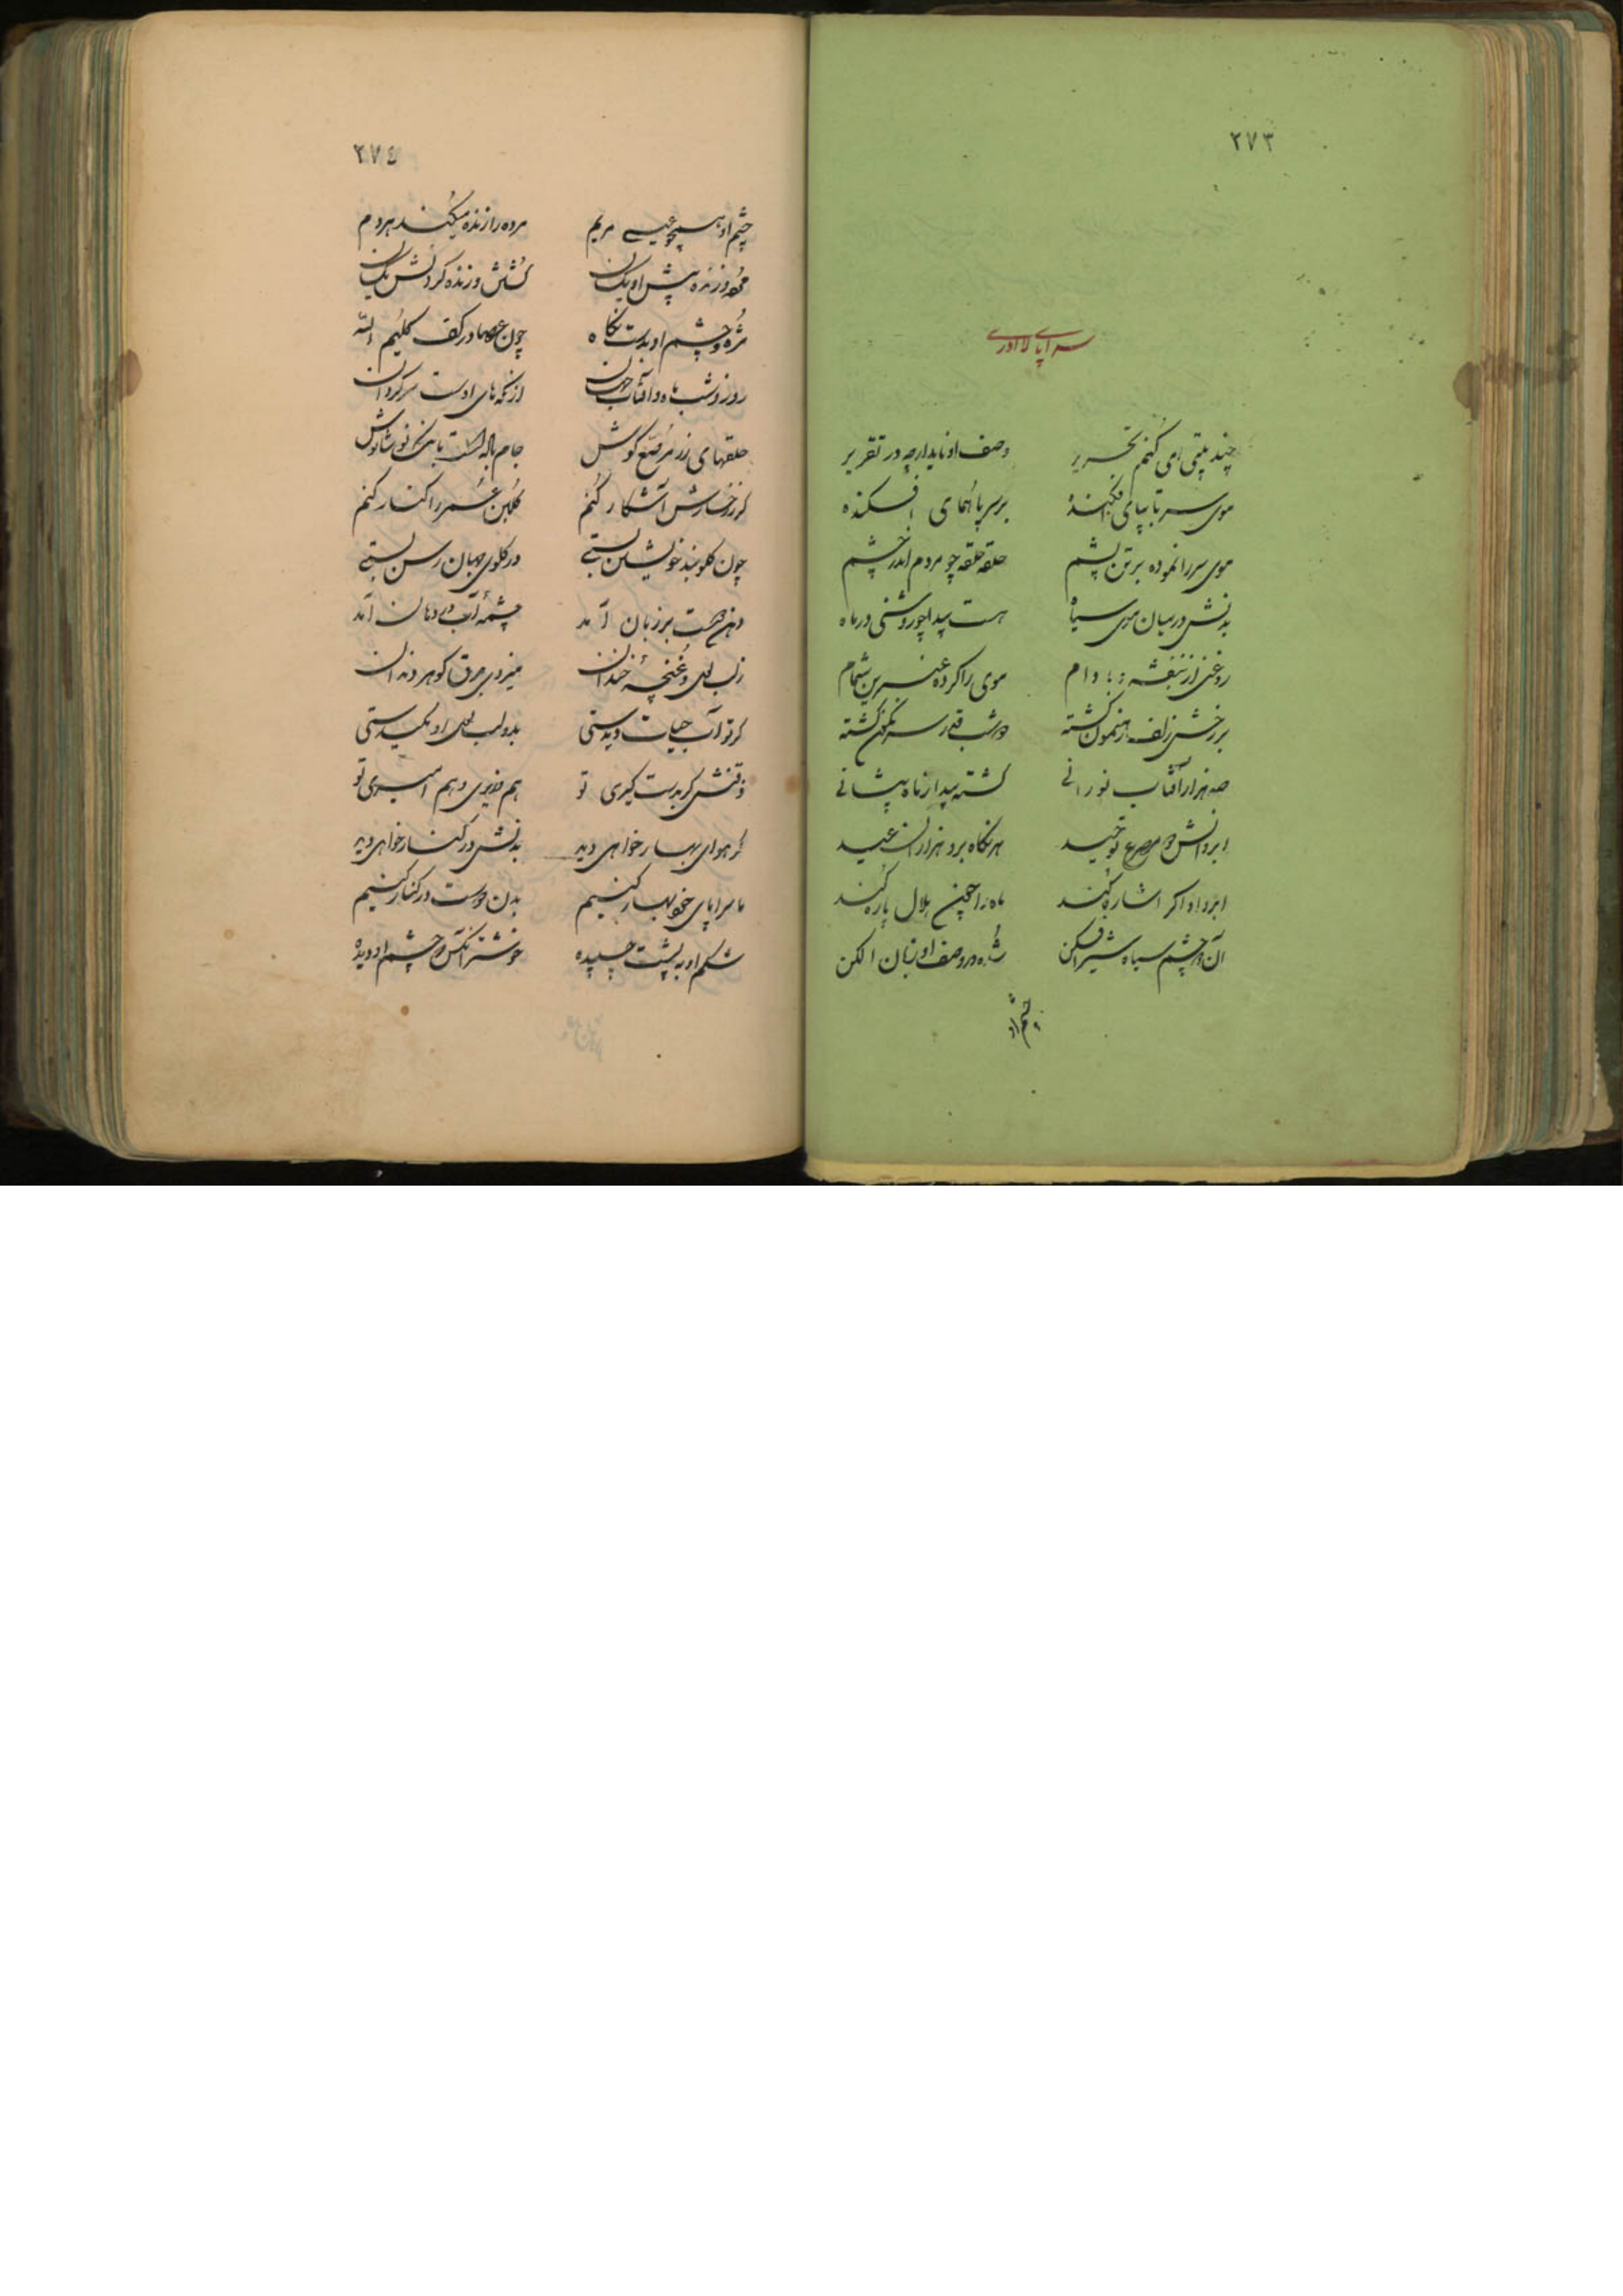 ۲۷۳
سراپای لا ادری
چند بیتی می کنم تحریر وصف او ناید ارچه در تقریر
موی سر تا بپای افکنده بر سر پا همای افکنده
موی سر را نموده برتن پشم حلقه حلقه چو مردم اندر چشم
بدنش در میان موی سیاه هست پیدا چو روشنی در ماه
روغنی از بنفشه وام موی را کرده عنبرین شمام
بر رخش زلف رهنمون گشته در شب قدر سرنگون گشته
صد هزار آفتاب نورانی گشته پیدا ز ماه پیشانی
ابروانش دو مصرع توحید هر نگاه برو هزاران عید
ابرو او اگر اشاره کند ماه را همچنین هلال پاره کند
آن دو چشم سیاه شیر افکن شده در وصف او زبان الکن
چشم او
۲۷٤
چشم او همچو عیسی مریم مرده را زنده میکند هر دم
مرده و زنده پیش او یکسان کشتن و زنده کردنش یکسان
مژه و چشم او بدست نگاه چون عصا در کف کلیم الله
روز و شب ماه و آفتاب جهان از نگه های اوست سرگردان
حلقهای زر مرصع گوش جام
گر ز رخسارش آشکار کنم گلبن عمر را کنار کنم
چون گلوبند خویشتن بستی در گلوی جهان رسن بستی
دهن هست بر زبان آمد چشمه آب در دهان آمد
زلب لعل و غنچه خندان میزدی برق گوهر دندان
گر تو آب حیات دیدستی بدو لب لعل او مکیدستی
ذقنش گر بدست گیری تو هم وزیری و هم امیری تو
گر هوای بهار خواهی دید بدنش در کنار خواهی دید
ما سراپای خود بهار کنیم بدن دوست در کنار کنیم
شکم او به پشت چسپیده خوشتر آنکس که چشم او دیده